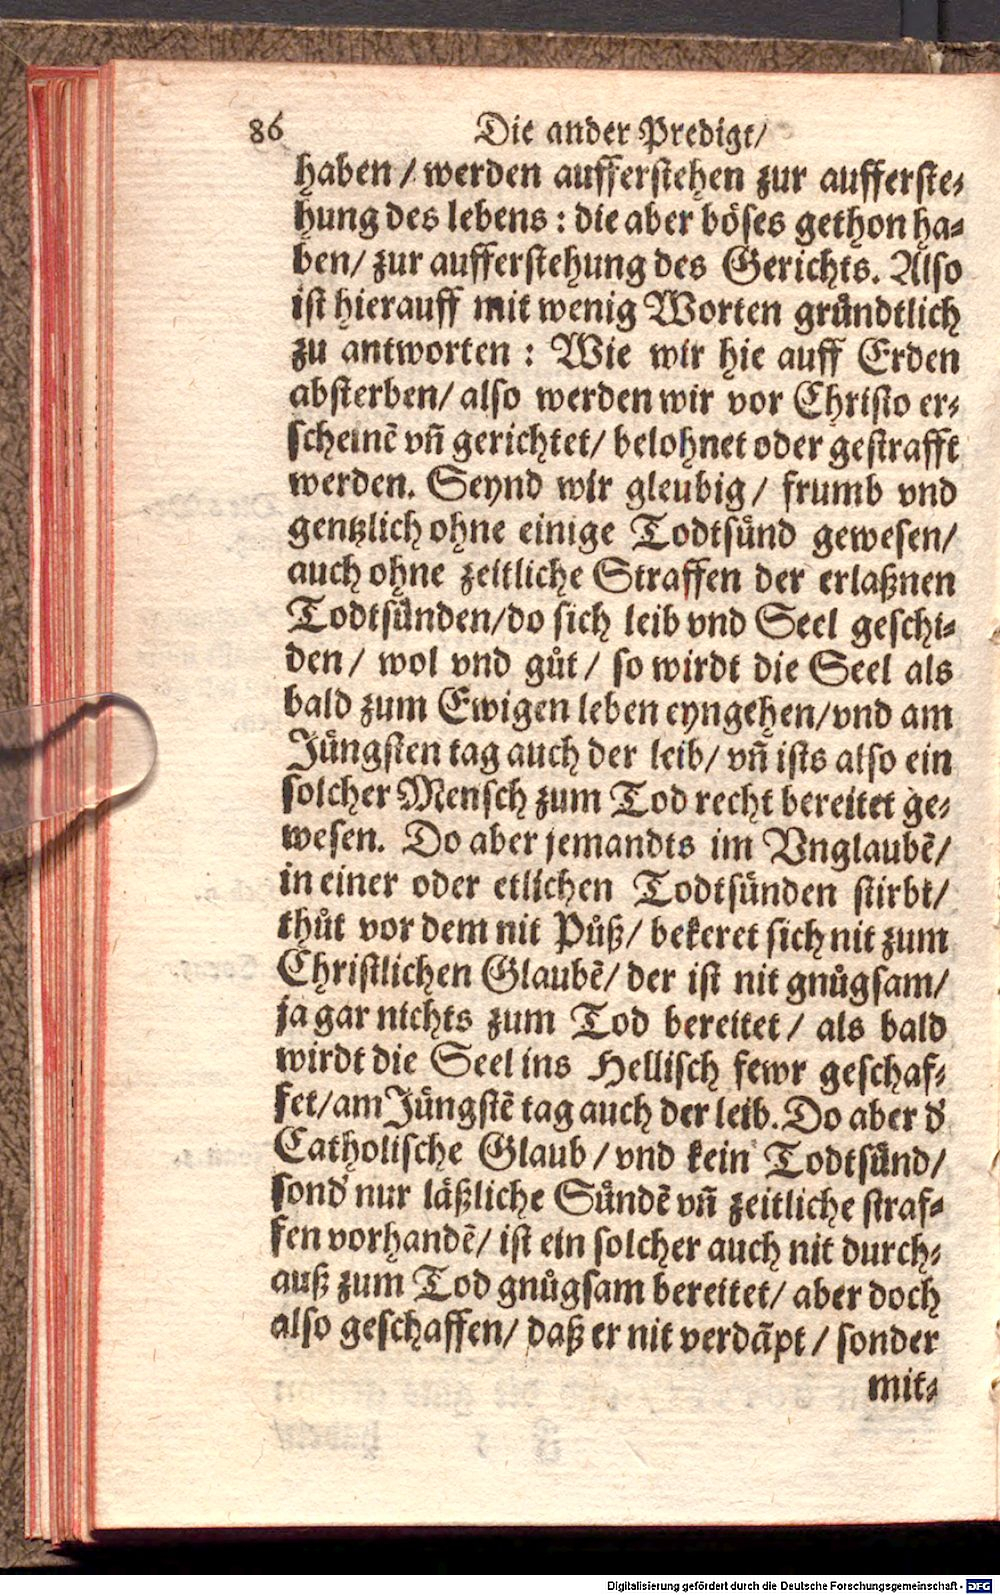 86 Die ander Predigt/
haben / werden aufferstehen zur aufferste⸗
hung des lebens : die aber böses gethon ha⸗
ben/ zur aufferstehung des Gerichts. Also
ist hierauff mit wenig Worten gruͤndtlich
zu antworten : Wie wir hie auff Erden
absterben/ also werden wir vor Christo er⸗
scheinē vñ gerichtet/ belohnet oder gestrafft
werden. Seynd wir gleubig / frumb vnd
gentzlich ohne einige Todtsuͤnd gewesen/
auch ohne zeitliche Straffen der erlaßnen
Todtsuͤnden/do sich leib vnd Seel geschi⸗
den / wol vnd guͦt / so wirdt die Seel als
bald zum Ewigen leben eyngehen/vnd am
Juͤngsten tag auch der leib/ vñ ists also ein
solcher Mensch zum Tod recht bereitet ge⸗
wesen. Do aber jemandts im Vnglaubē/
in einer oder etlichen Todtsuͤnden stirbt/
thuͦt vor dem nit Puͦß/ bekeret sich nit zum
Christlichen Glaubē/ der ist nit gnuͦgsam/
ja gar nichts zum Tod bereitet / als bald
wirdt die Seel ins Hellisch fewr geschaf⸗
fet/am Juͤngstē tag auch der leib. Do aber d'
Catholische Glaub / vnd kein Todtsuͤnd/
sond' nur läßliche Suͤndē vñ zeitliche straf⸗
fen vorhandē/ ist ein solcher auch nit durch⸗
auß zum Tod gnuͦgsam bereitet/ aber doch
also geschaffen/ daß er nit verdāpt / sonder
mit⸗
Digitalisierung gefördert durch die Deutsche Forschungsgemeinschaft - DFG